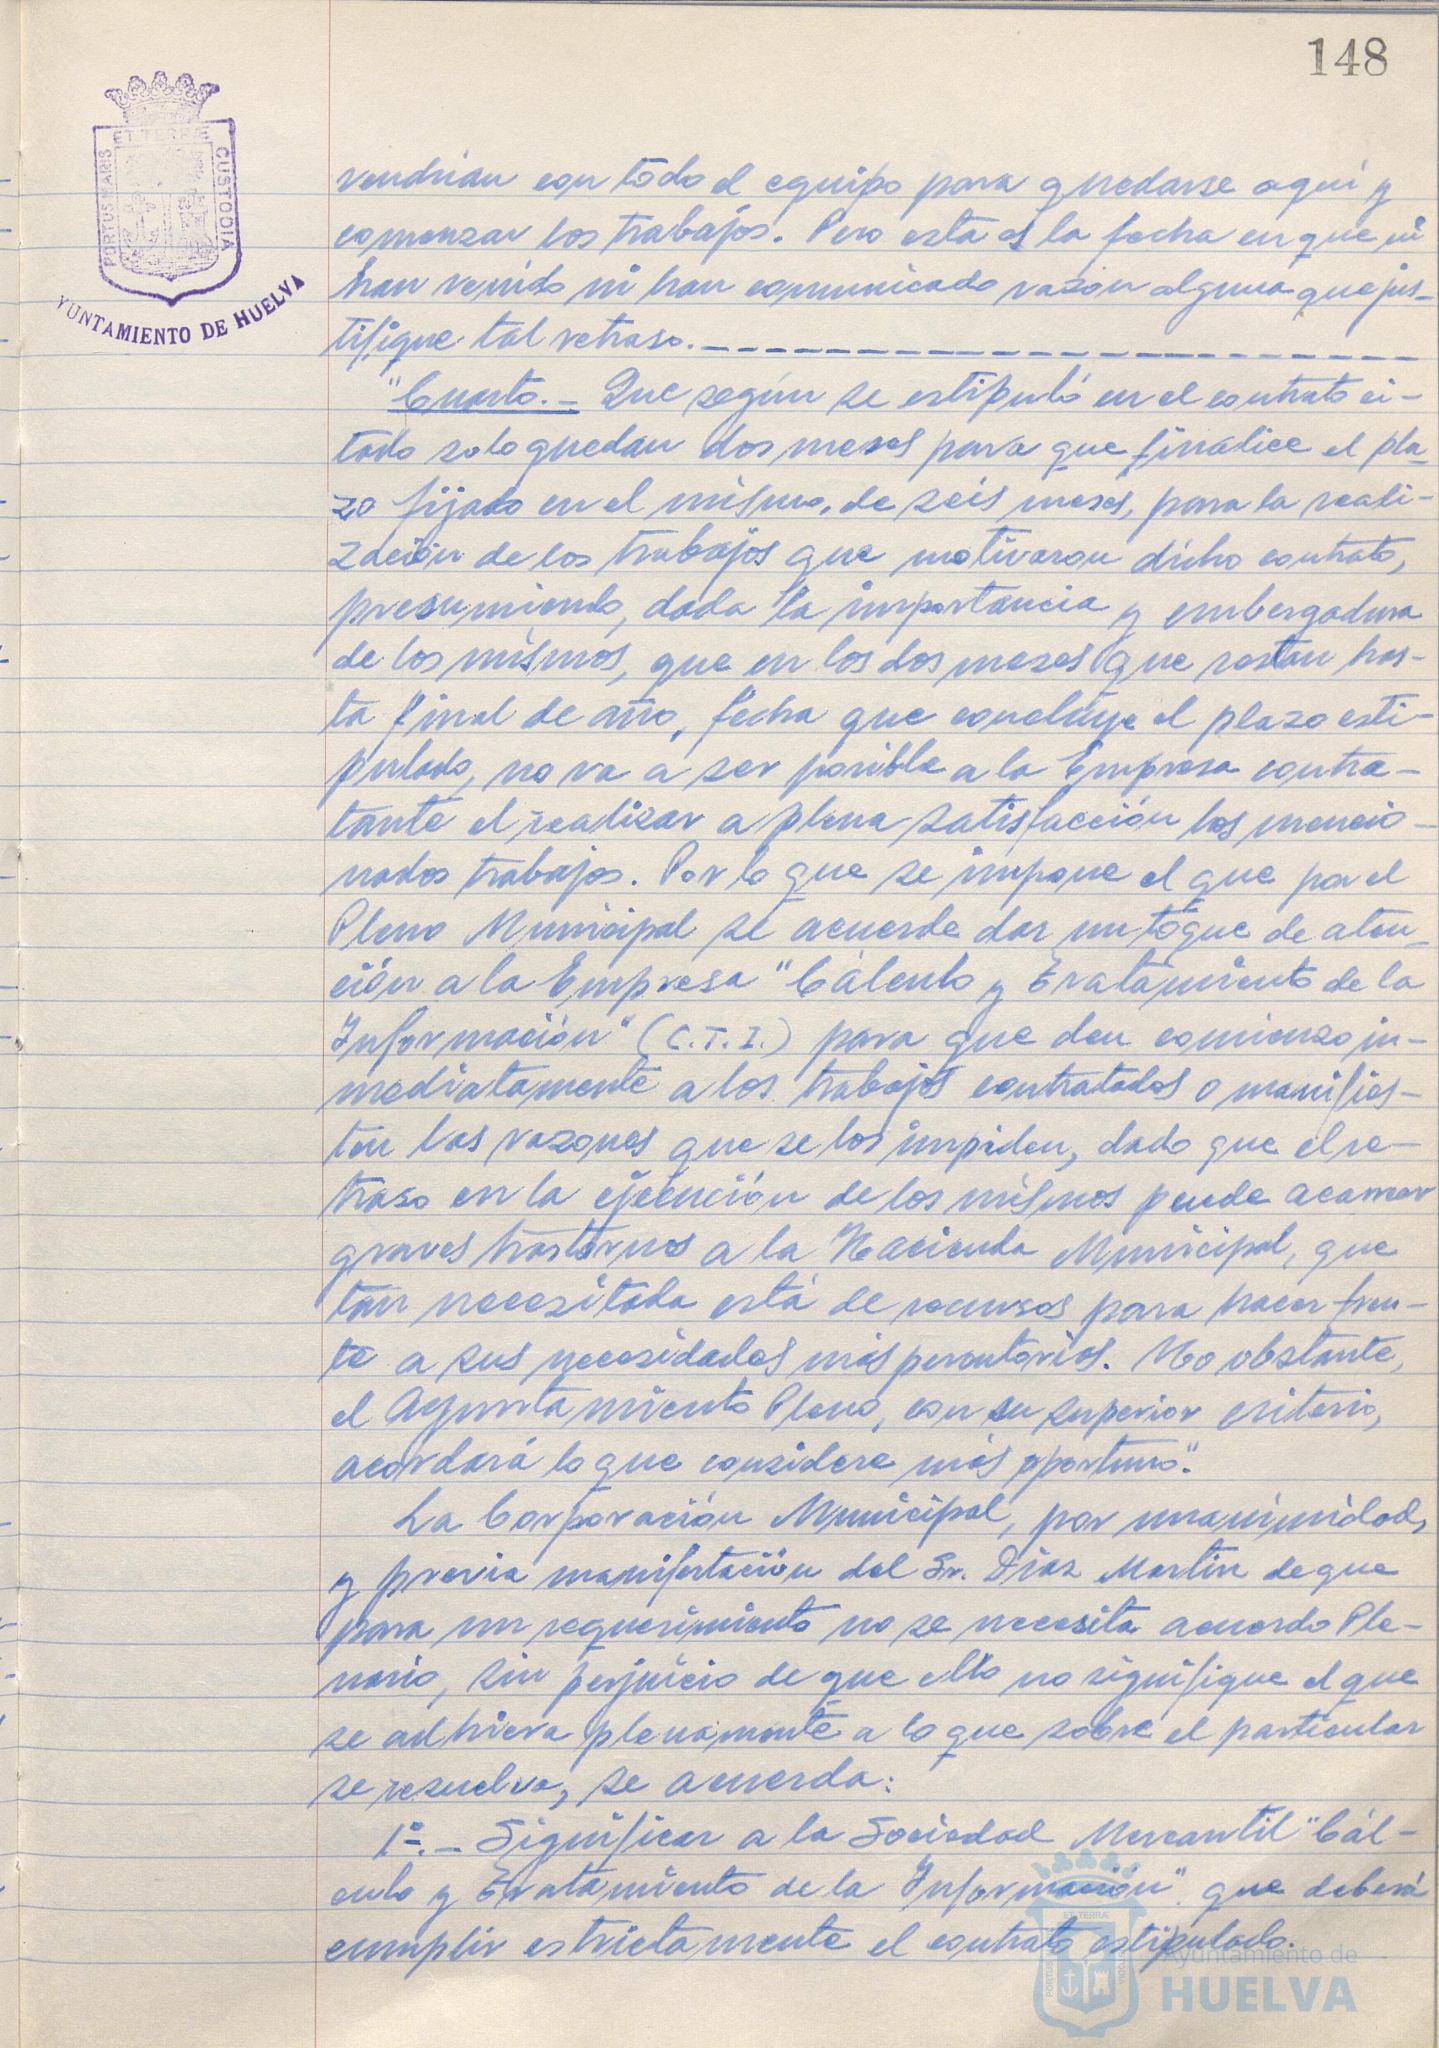 148
ET TERRÆ
PORTUS MARIS
CUSTODIA
YUNTAMIENTO DE HUELVA
vendrian con todo el equipo para quedarse aqui y
comenzar los trabajos. Pero esta es la fecha en que ni
han venido ni han comunicado razón alguna que jus-
tifique tal retraso.
"Cuarto.- Que según se estipuló en el contrato ci-
tado solo quedan dos meses para que finalice el pla-
zo fijado en el mismo, de seis meses, para la reali-
zación de los trabajos que motivaron dicho contrato,
presumiendo, dada la importancia y embergadura
de los mismos, que en los dos meses que restan has-
ta final de año, fecha que concluye el plazo esti-
pulado, no va a ser posible a la Empresa contra-
tante el realizar a plena satisfacción los mencio-
nados trabajos. Por lo que se impone el que por el
Pleno Municipal se acuerde dar un toque de aten-
ción a la Empresa "Cálculo y Tratamiento de la
Información" (C.T.I.) para que den comienzo in-
mediatamente a los trabajos contratados o manifies-
ten las razones que se los impiden, dado que el re-
traso en la ejecución de los mismos puede acarrear
graves trastornos a la Hacienda Municipal, que
tan necesitada está de recursos para hacer fren-
te a sus necesidades más perentorias. No obstante,
el Ayuntamiento Pleno, con su superior criterio,
acordará lo que considere más oportuno".
La Corporación Municipal, por unanimidad,
y previa manifestación del Sr. Diaz Martin de que
para un requerimiento no se necesita acuerdo Ple-
nario, sin perjuicio de que ello no signifique el que
se adhiera plenamente a lo que sobre el particular
se resuelva, se acuerda:
1º.- Significar a la Sociedad Mercantil "Cál-
culo y Tratamiento de la Información" que deberá
cumplir estrictamente el contrato estipulado.
ET TERRÆ
PORTUS
CUSTODIA
Ayuntamiento de
HUELVA